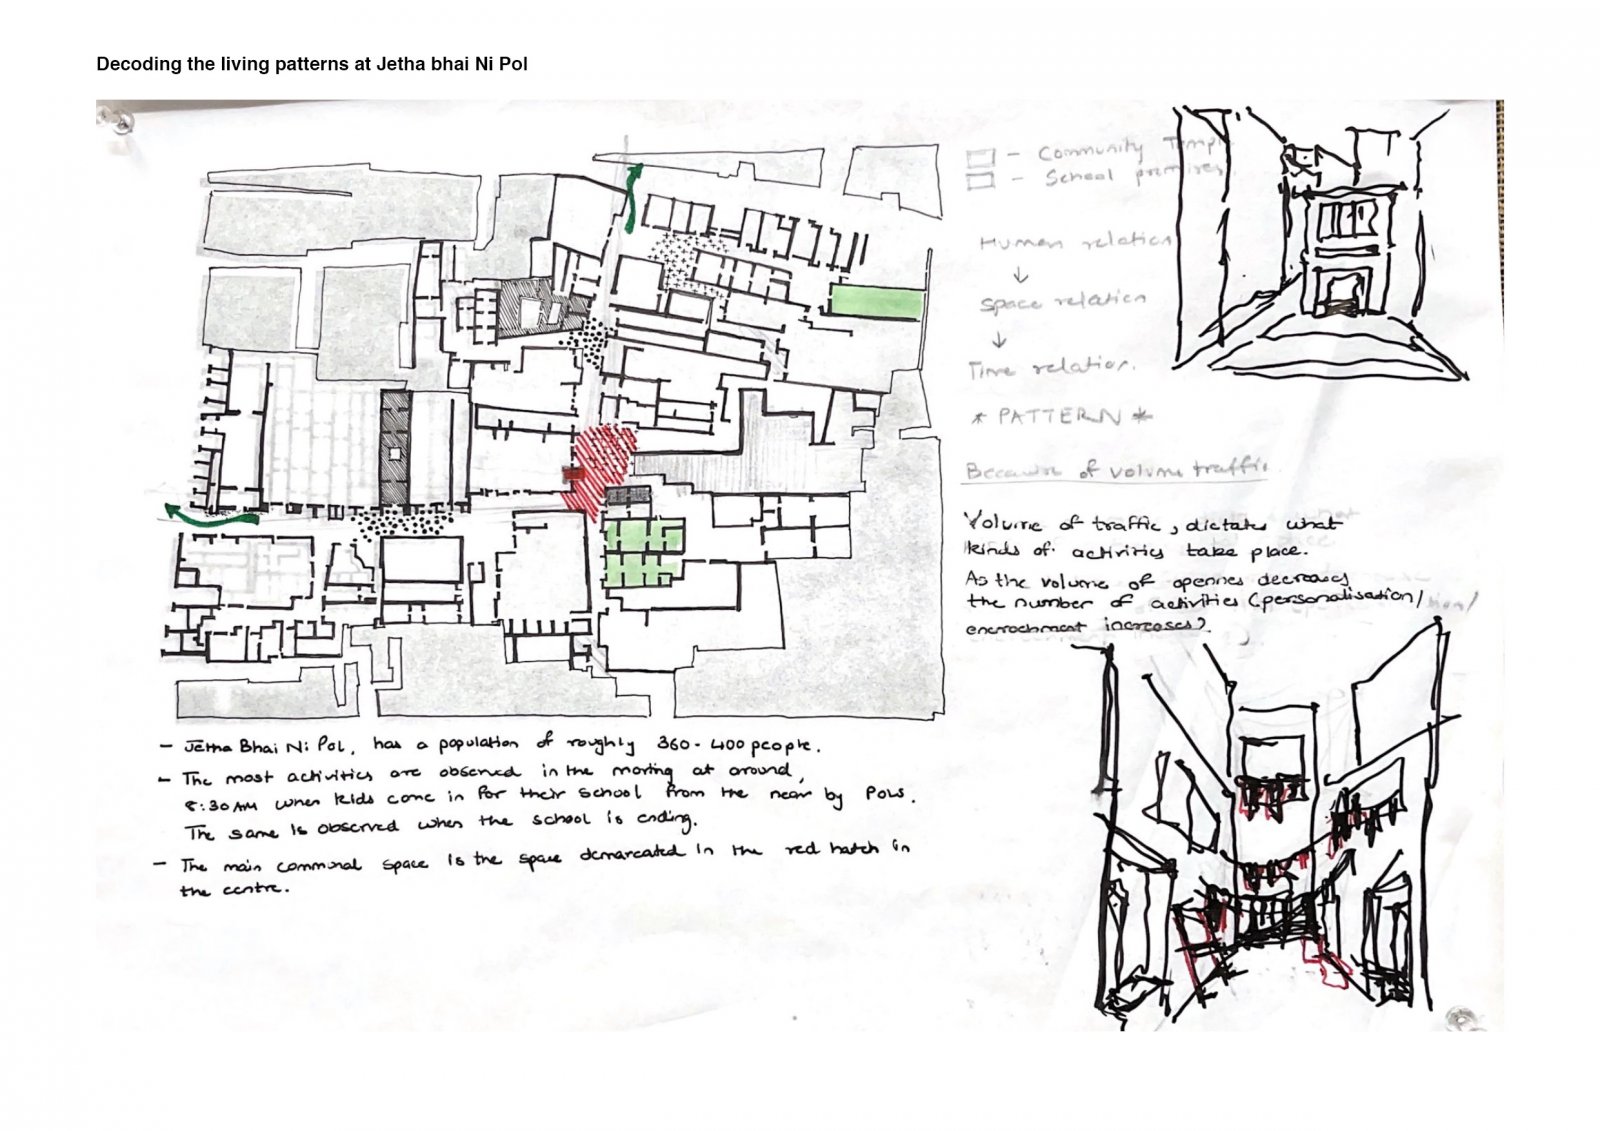 Decoding the living patterns at Jetha bhai Ni Pol
- Community Temple
- School premises
Human relation
↓
Space relation
↓
Time relation.
* PATTERN *
Because of volume traffic
Volume of traffic, dictates what
kinds of activities take place.
As the volume of openness decreases
the number of activities (personalisation/
encroachment increases).
- Jetha Bhai Ni Pol, has a population of roughly 360-400 people.
- The most activities are observed in the moring at around,
8:30AM when kids come in for their school from the near by Pols.
The same is observed when the school is ending.
- The main communal space is the space demarcated in the red hatch in
the centre.